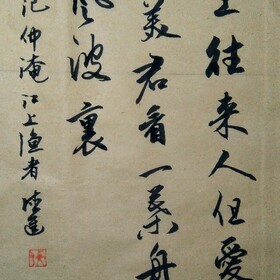 上往来人但爱
美君看一叶舟
风波里
范仲淹江上渔者